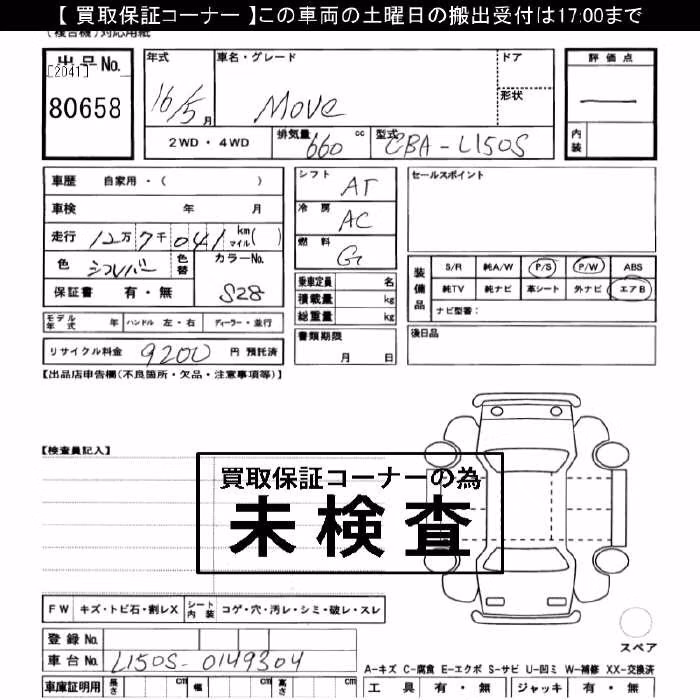 【 買取保証コーナー 】この車両の土曜日の搬出受付は17:00まで
(複合機)対応用紙
出品No.
[2041]
80658
年式
16/5月
車名・グレード
Move
ドア
形状
評価点
—
内装
2WD・4WD
排気量 660 cc
型式 CBA-L150S
車歴 自家用・( )
車検 年 月
走行 12万7千041 km マイル( )
色 シルバー 色替 カラーNo. S28
保証書 有・無
モデル年式 年 ハンドル 左・右 ディーラー・並行
リサイクル料金 9200 円 預託済
シフト AT
冷房 AC
燃料 G
乗車定員 名
積載量 kg
総重量 kg
書類期限
月 日
セールスポイント
装備品
S/R 純A/W P/S P/W ABS
純TV 純ナビ 革シート 外ナビ エアB
ナビ型番:
後日品
【出品店申告欄(不良箇所・欠品・注意事項等)】
【検査員記入】
買取保証コーナーの為
未検査
FW キズ・トビ石・割レX シート内装 コゲ・穴・汚レ・シミ・破レ・スレ
登録No.
車台No. L150S-0149304
車庫証明用 長さ cm 幅 cm 高さ cm
スペア
A-キズ C-腐食 E-エクボ S-サビ U-凹ミ W-補修 XX-交換済
工具 有・無 ジャッキ 有・無